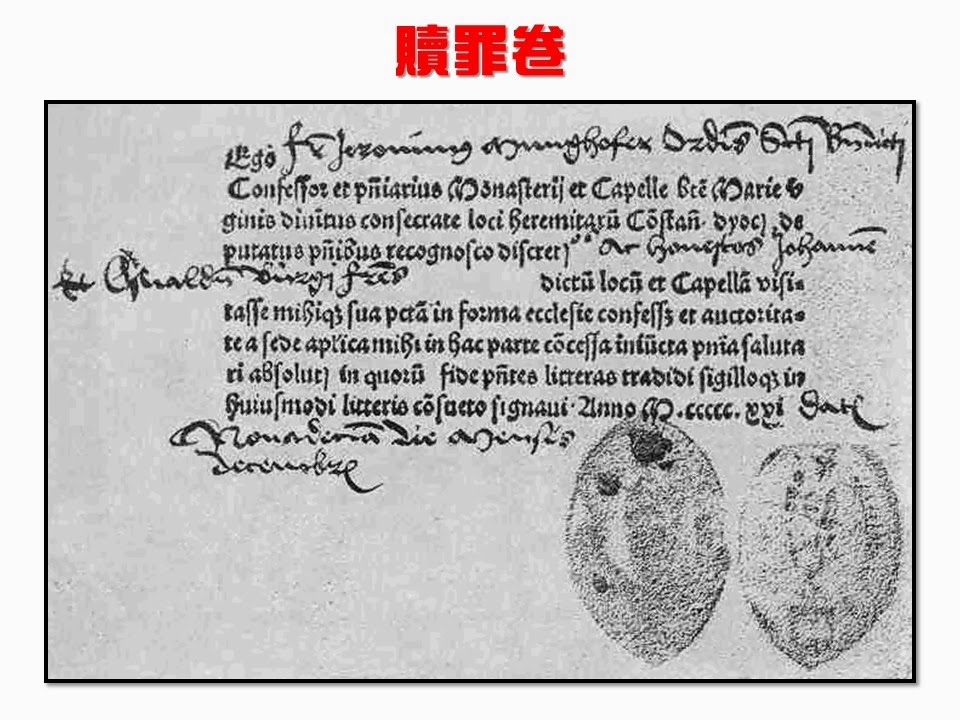 贖罪卷
Ego fr̄ Jeronimus Munghofer Ordīs Scti Bn̄dicti
Confessor et pn̄iarius Monasterij et Capelle btē Marie v
ginis diuitus consecrate loci heremitarū Cōstan̄. dyocꝫ de
putatus pn̄ibus recognosco discretꝫ Ac honestos Johannē
et Oswaldū Burgi fres dictū locū et Capellā visi⸗
tasse mihiqꝫ sua pctā in forma ecclesie confessꝫ et auctorita⸗
te a sede aplica mihi in hac parte cōcessa iniūcta pnīa saluta
ri absolutꝫ in quorū fide pn̄tes litteras tradidi sigilloqꝫ in
huiusmodi litteris cōsueto signaui. Anno M.ccccc.xxi Datꝫ
Nonadecīa die Mensis
decembrꝫ